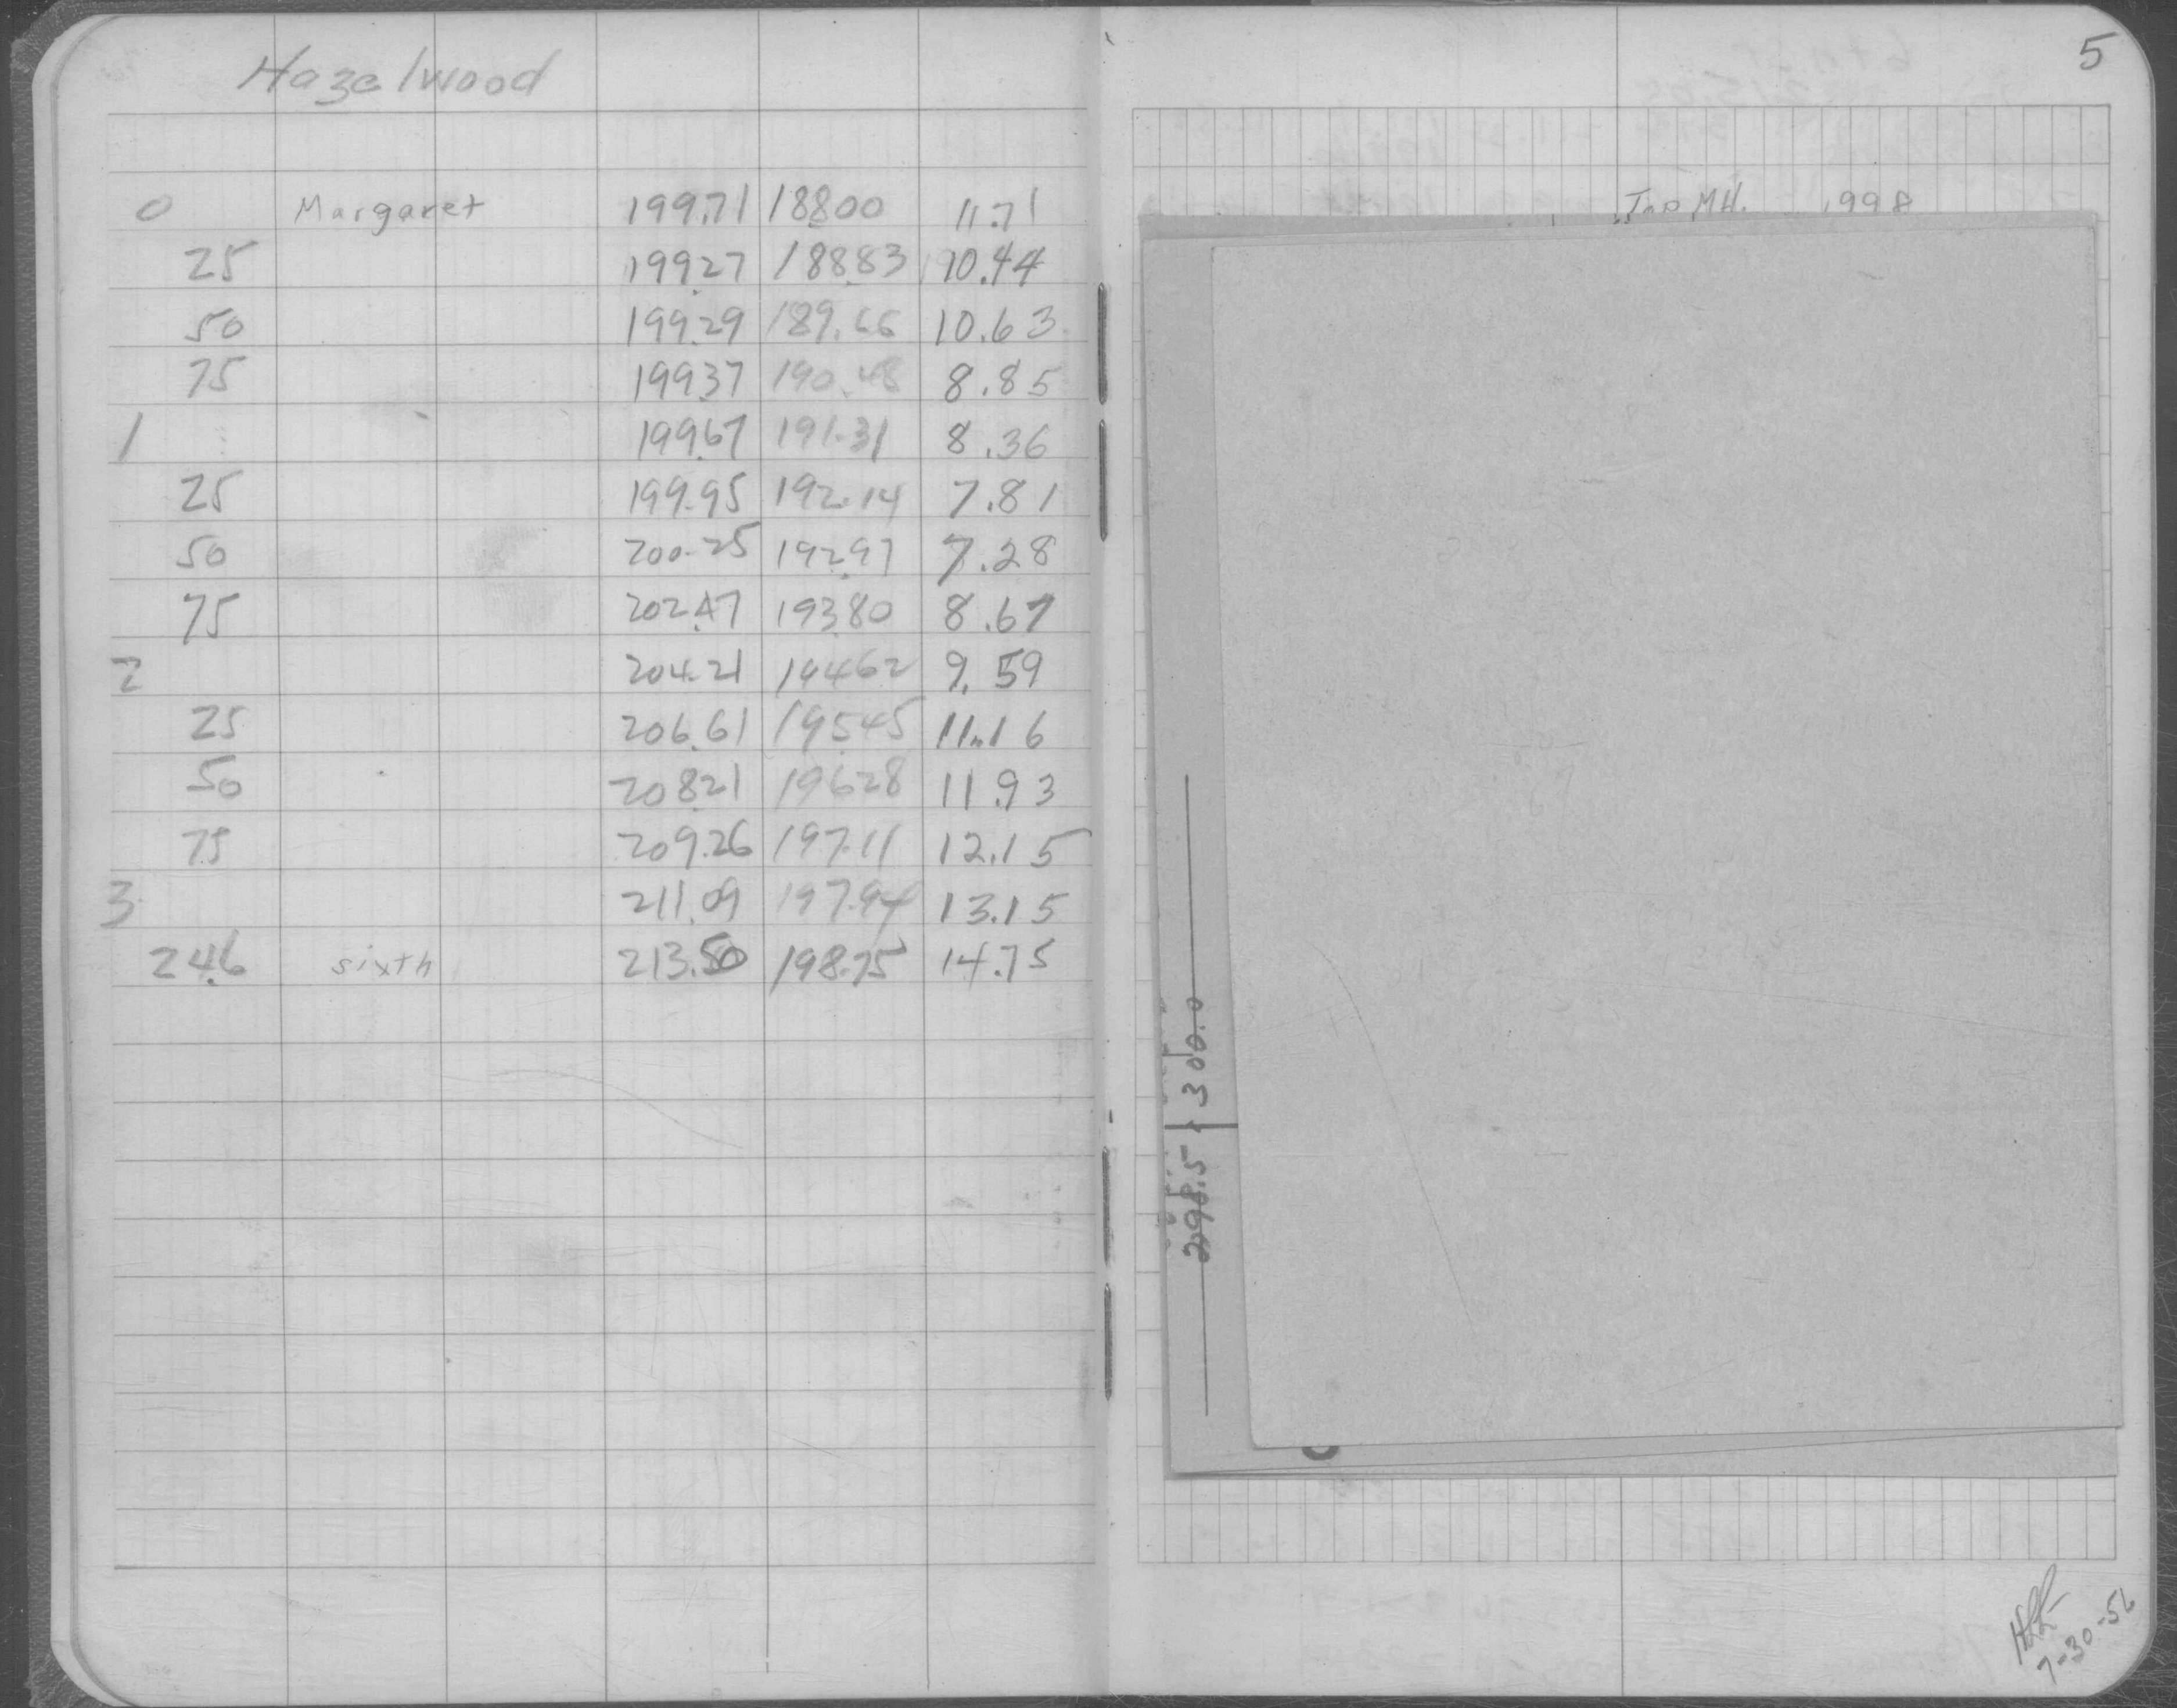 Hazelwood
5
0 Margaret 199.71 188.00 11.71
25 199.27 188.83 10.44
50 199.29 189.66 10.63
75 199.37 190.48 8.85
1 199.67 191.31 8.36
25 199.95 192.14 7.81
50 200.25 192.97 7.28
75 202.47 193.80 8.67
2 204.21 194.62 9.59
25 206.61 195.45 11.16
50 208.21 196.28 11.93
75 209.26 197.11 12.15
3 211.09 197.94 13.15
24.6 sixth 213.50 198.75 14.75
Top MH. 1998
298.5 300.0
7-30-56